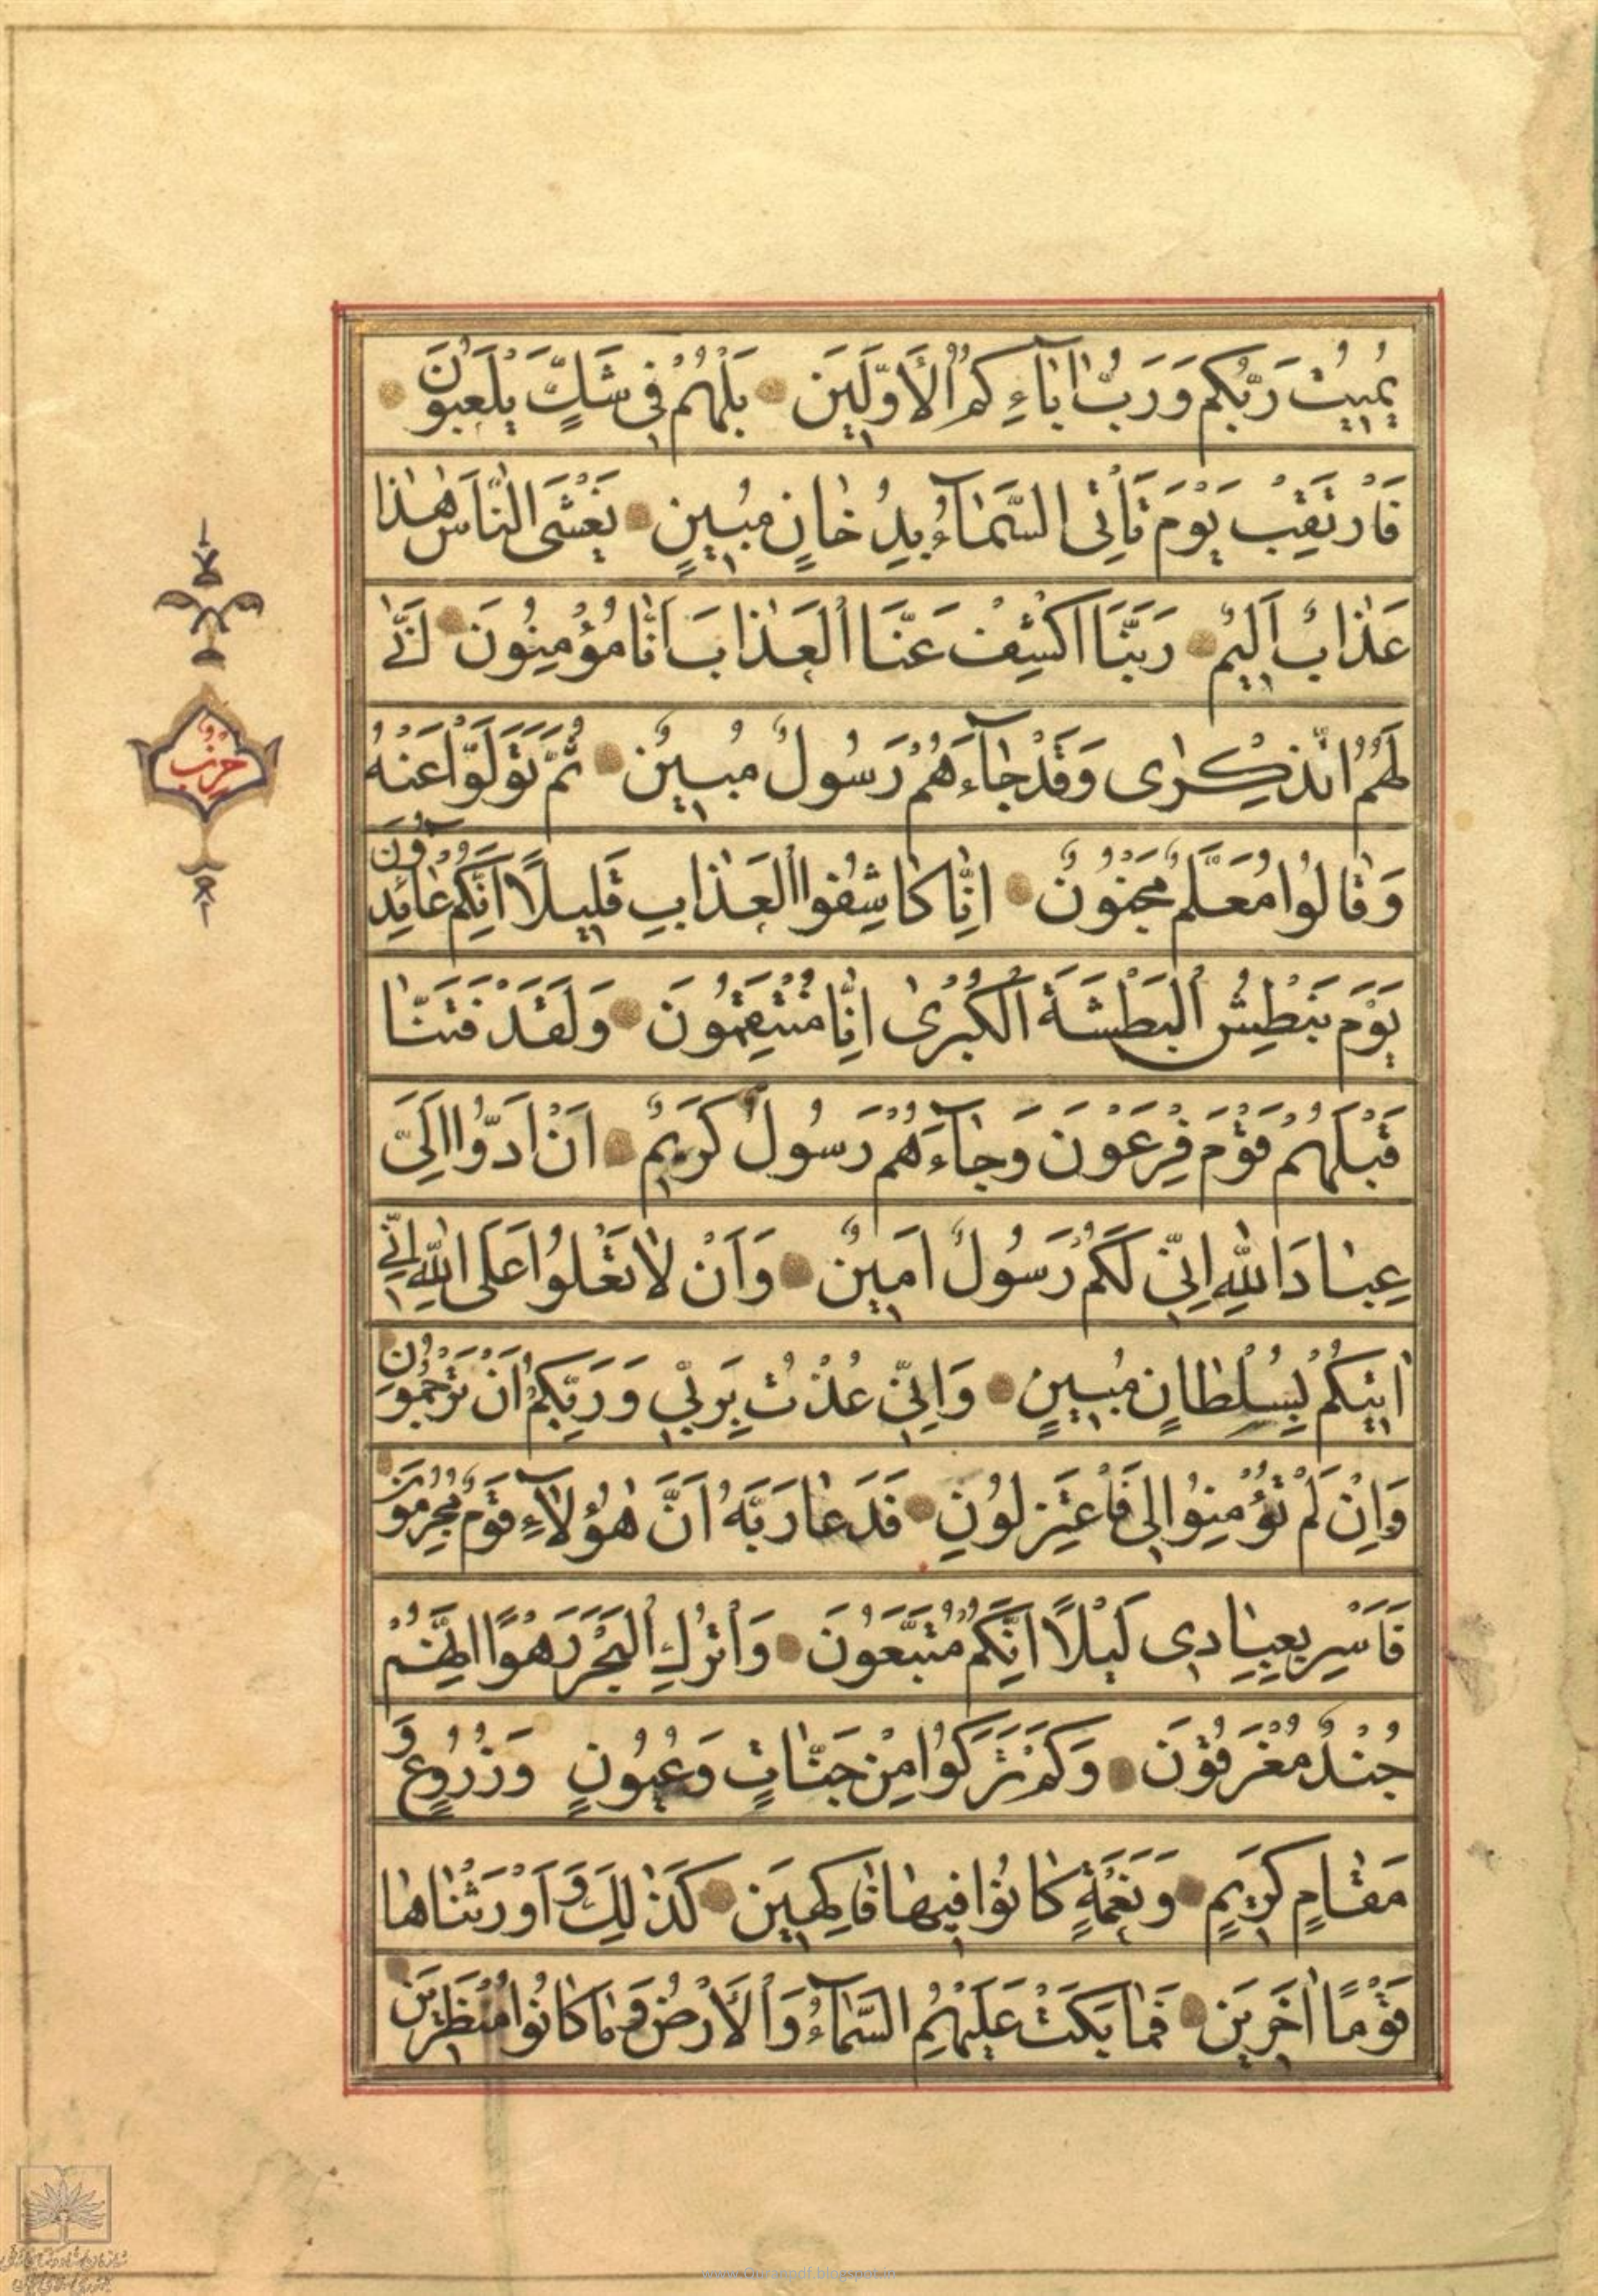 يُمِيتُ رَبُّكُمْ وَرَبُّ اٰبَاۤءِكُمُ الْاَوَّلِينَ بَلْ هُمْ فِى شَكٍّ يَلْعَبُونَ
فَارْتَقِبْ يَوْمَ تَأْتِى السَّمَاۤءُ بِدُخَانٍ مُبِينٍ يَغْشَى النَّاسَ هٰذَا
عَذَابٌ اَلِيمٌ رَبَّنَا اكْشِفْ عَنَّا الْعَذَابَ اِنَّا مُؤْمِنُونَ اَنّٰى
لَهُمُ الذِّكْرٰى وَقَدْ جَاۤءَهُمْ رَسُولٌ مُبِينٌ ثُمَّ تَوَلَّوْا عَنْهُ
وَقَالُوا مُعَلَّمٌ مَجْنُونٌ اِنَّا كَاشِفُوا الْعَذَابِ قَلِيلًا اِنَّكُمْ عَائِدُونَ
يَوْمَ نَبْطِشُ الْبَطْشَةَ الْكُبْرٰى اِنَّا مُنْتَقِمُونَ وَلَقَدْ فَتَنَّا
قَبْلَهُمْ قَوْمَ فِرْعَوْنَ وَجَاۤءَهُمْ رَسُولٌ كَرِيمٌ اَنْ اَدُّوا اِلَىَّ
عِبَادَ اللّٰهِ اِنِّى لَكُمْ رَسُولٌ اَمِينٌ وَاَنْ لَا تَعْلُوا عَلَى اللّٰهِ اِنِّى
اٰتِيكُمْ بِسُلْطَانٍ مُبِينٍ وَاِنِّى عُذْتُ بِرَبِّى وَرَبِّكُمْ اَنْ تَرْجُمُونِ
وَاِنْ لَمْ تُؤْمِنُوا لِى فَاعْتَزِلُونِ فَدَعَا رَبَّهُ اَنَّ هٰؤُلَاۤءِ قَوْمٌ مُجْرِمُونَ
فَاَسْرِ بِعِبَادِى لَيْلًا اِنَّكُمْ مُتَّبَعُونَ وَاتْرُكِ الْبَحْرَ رَهْوًا اِنَّهُمْ
جُنْدٌ مُغْرَقُونَ وَكَمْ تَرَكُوا مِنْ جَنَّاتٍ وَعُيُونٍ وَزُرُوعٍ وَ
مَقَامٍ كَرِيمٍ وَنَعْمَةٍ كَانُوا فِيهَا فَاكِهِينَ كَذٰلِكَ وَ اَوْرَثْنَاهَا
قَوْمًا اٰخَرِينَ فَمَا بَكَتْ عَلَيْهِمُ السَّمَاۤءُ وَالْاَرْضُ وَمَا كَانُوا مُنْظَرِينَ
حزب
www.Quranpdf.blogspot.in